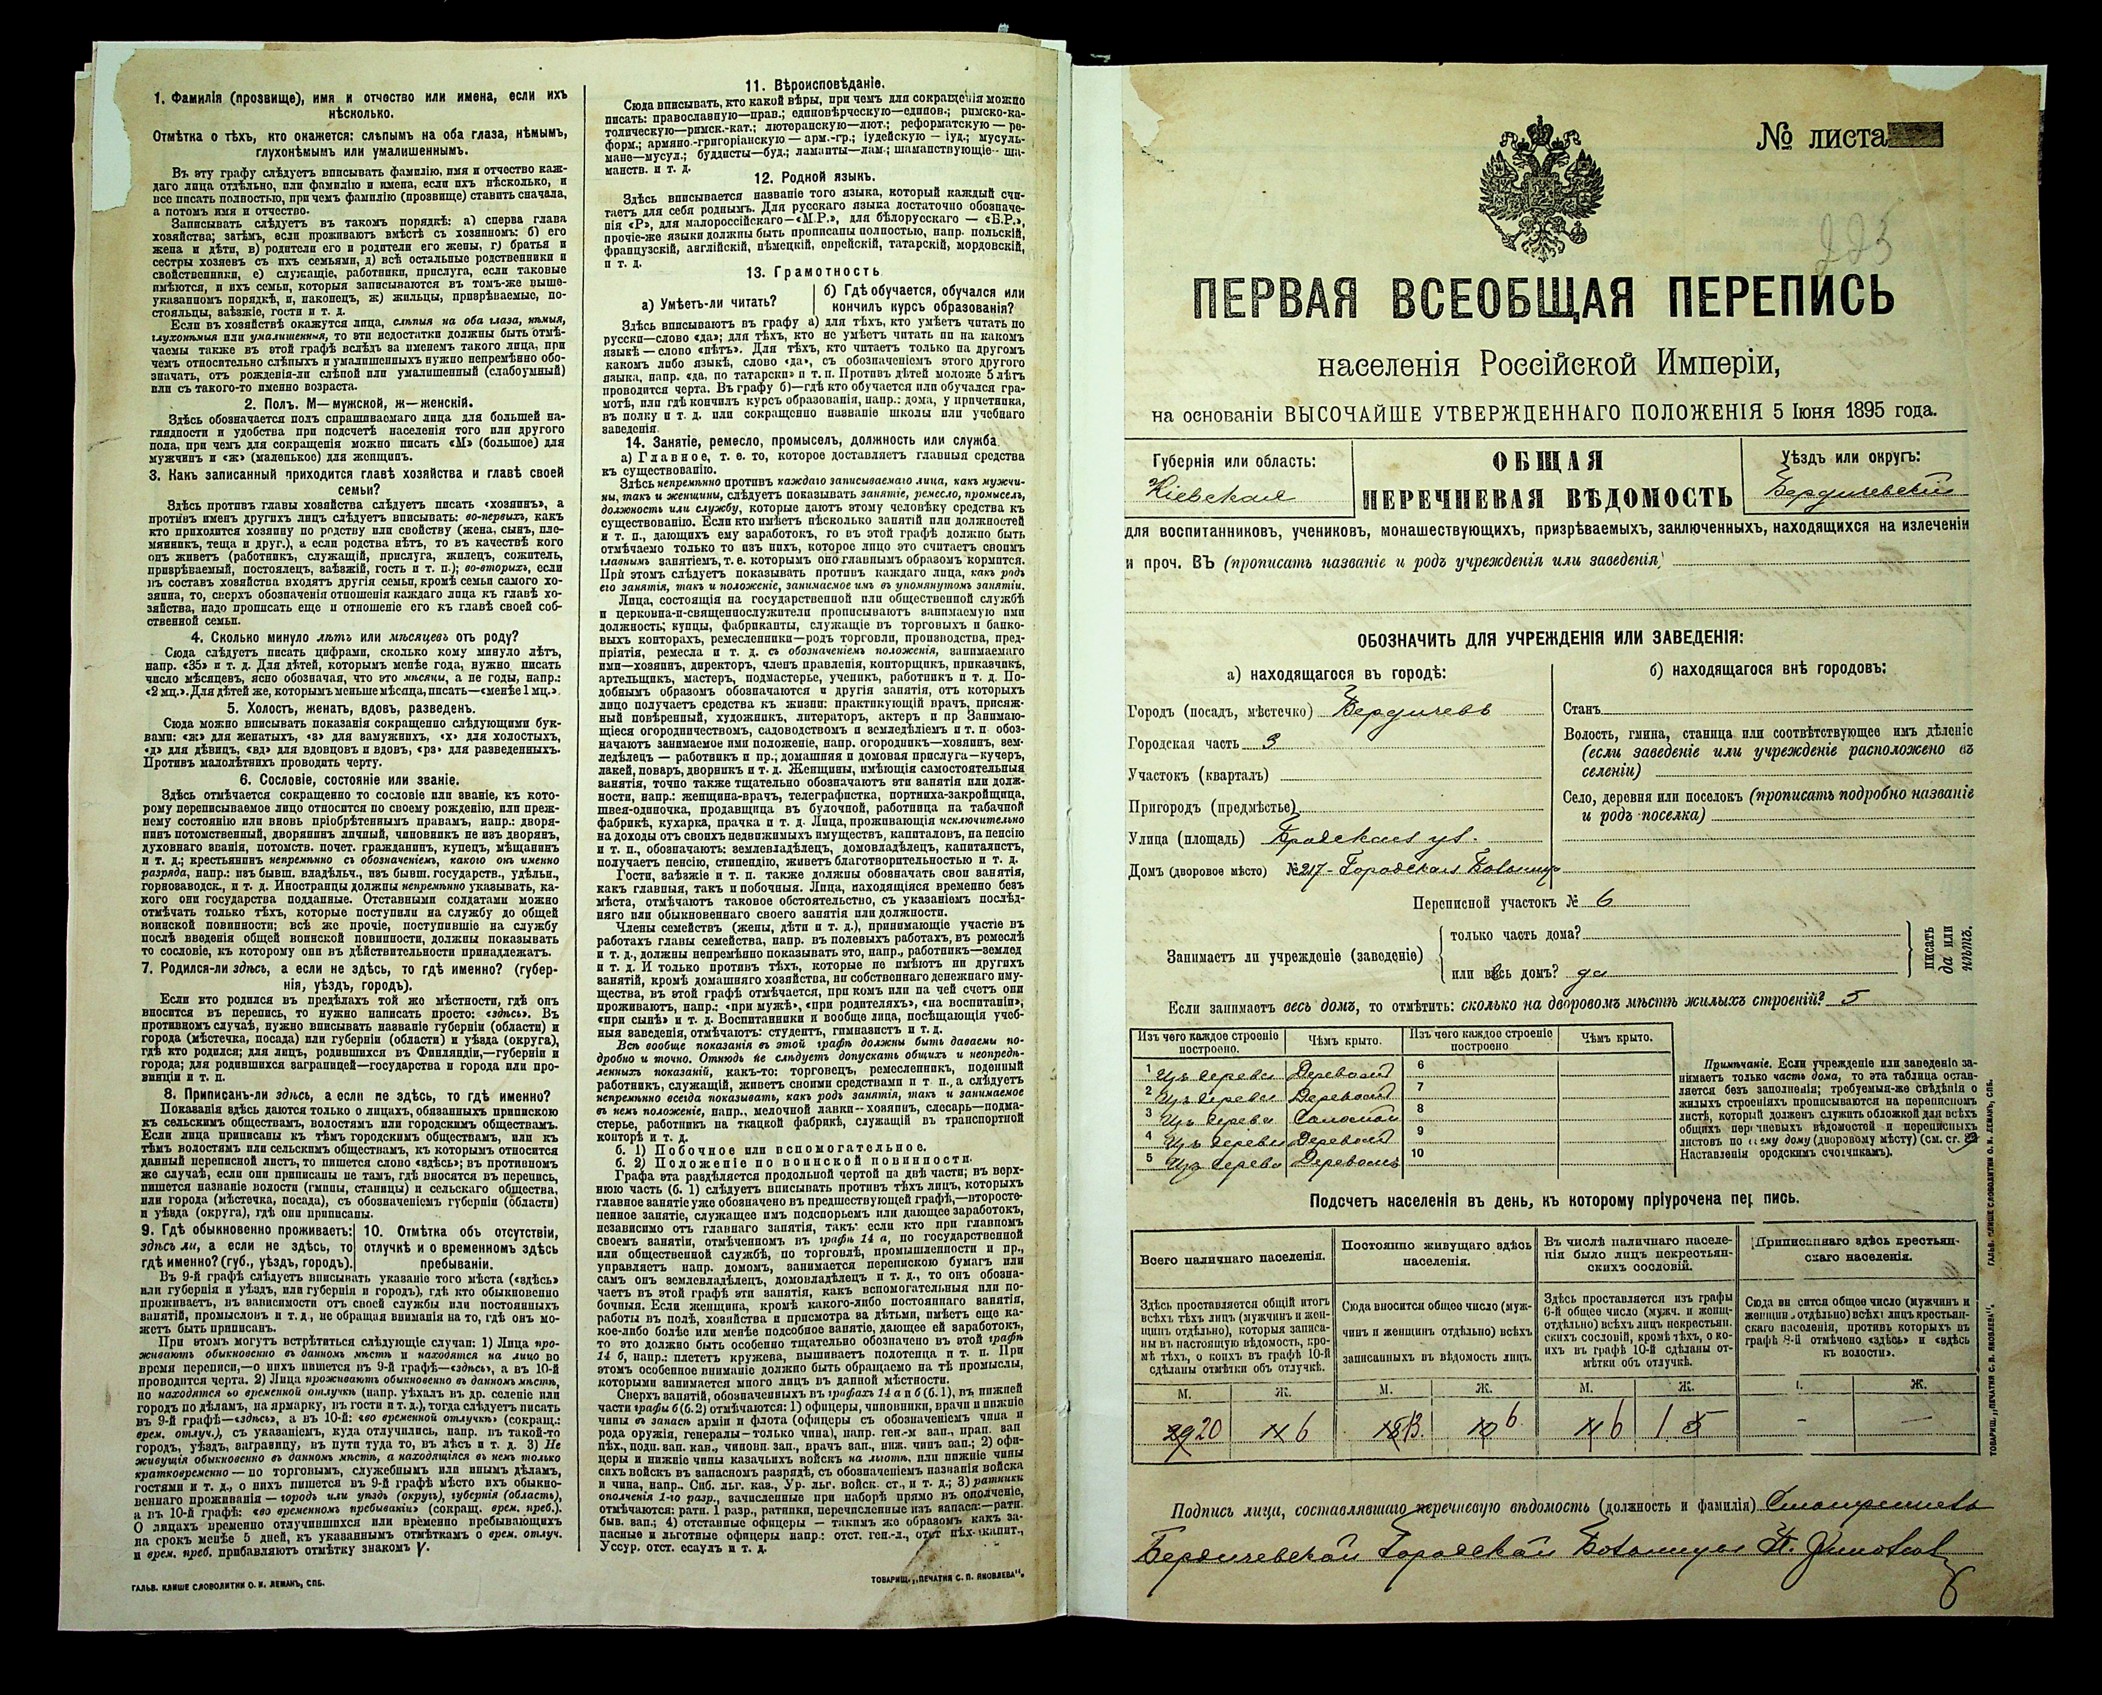 1. Фамилія (прозвище), имя и отчество или имена, если ихъ
нѣсколько.
Отмѣтка о тѣхъ, кто окажется: слѣпымъ на оба глаза, нѣмымъ,
глухонѣмымъ или умалишеннымъ.
Въ эту графу слѣдуетъ вписывать фамилію, имя и отчество каж-
даго лица отдѣльно, или фамилію и имена, если ихъ нѣсколько, и
все писать полностью, при чемъ фамилію (прозвище) ставить сначала,
а потомъ имя и отчество.
Записывать слѣдуетъ въ такомъ порядкѣ: а) сперва глава
хозяйства; затѣмъ, если проживаютъ вмѣстѣ съ хозяиномъ: б) его
жена и дѣти, в) родители его и родители его жены, г) братья и
сестры хозяевъ съ ихъ семьями, д) всѣ остальные родственники и
свойственники, е) служащіе, работники, прислуга, если таковые
имѣются, и ихъ семьи, которыя записываются въ томъ-же выше-
указанномъ порядкѣ, и, наконецъ, ж) жильцы, призрѣваемые, по-
стояльцы, заѣзжіе, гости и т. д.
Если въ хозяйствѣ окажутся лица, слѣпыя на оба глаза, нѣмыя,
глухонѣмыя или умалишенныя, то эти недостатки должны быть отмѣ-
чаемы также въ этой графѣ вслѣдъ за именемъ такого лица, при
чемъ относительно слѣпыхъ и умалишенныхъ нужно непремѣнно обо-
значать, отъ рожденія-ли слѣпой или умалишенный (слабоумный)
или съ такого-то именно возраста.
2. Полъ. М—мужской, ж—женскій.
Здѣсь обозначается полъ спрашиваемаго лица для большей на-
глядности и удобства при подсчетѣ населенія того или другого
пола, при чемъ для сокращенія можно писать «М» (большое) для
мужчинъ и «ж» (маленькое) для женщинъ.
3. Какъ записанный приходится главѣ хозяйства и главѣ своей
семьи?
Здѣсь противъ главы хозяйства слѣдуетъ писать «хозяинъ», а
противъ именъ другихъ лицъ слѣдуетъ вписывать: во-первыхъ, какъ
кто приходится хозяину по родству или свойству (жена, сынъ, пле-
мянникъ, теща и друг.), а если родства нѣтъ, то въ качествѣ кого
онъ живетъ (работникъ, служащій, прислуга, жилецъ, сожитель,
призрѣваемый, постоялецъ, заѣзжій, гость и т. п.); во-вторыхъ, если
въ составъ хозяйства входятъ другія семьи, кромѣ семьи самого хо-
зяина, то, сверхъ обозначенія отношенія каждаго лица къ главѣ хо-
зяйства, надо прописать еще и отношеніе его къ главѣ своей соб-
ственной семьи.
4. Сколько минуло лѣтъ или мѣсяцевъ отъ роду?
Сюда слѣдуетъ писать цифрами, сколько кому минуло лѣтъ,
напр. «35» и т. д. Для дѣтей, которымъ менѣе года, нужно писать
число мѣсяцевъ, ясно обозначая, что это мѣсяцы, а не годы, напр.:
«2 мц.». Для дѣтей же, которымъ меньше мѣсяца, писать—«менѣе 1 мц.».
5. Холостъ, женатъ, вдовъ, разведенъ.
Сюда можно вписывать показанія сокращенно слѣдующими бук-
вами: «ж» для женатыхъ, «з» для замужнихъ, «х» для холостыхъ,
«д» для дѣвицъ, «вд» для вдовцовъ и вдовъ, «рз» для разведенныхъ.
Противъ малолѣтнихъ проводить черту.
6. Сословіе, состояніе или званіе.
Здѣсь отмѣчается сокращенно то сословіе или званіе, къ кото-
рому переписываемое лицо относится по своему рожденію, или преж-
нему состоянію или вновь пріобрѣтеннымъ правамъ, напр.: дворя-
нинъ потомственный, дворянинъ личный, чиновникъ не изъ дворянъ,
духовнаго званія, потомств. почет. гражданинъ, купецъ, мѣщанинъ
и т. д.; крестьянинъ непремѣнно съ обозначеніемъ, какого онъ именно
разряда, напр.: изъ бывш. владѣльч., изъ бывш. государств., удѣльн.,
горнозаводск., и т. д. Иностранцы должны непремѣнно указывать, ка-
кого они государства подданные. Отставными солдатами можно
отмѣчать только тѣхъ, которые поступили на службу до общей
воинской повинности; всѣ же прочіе, поступившіе на службу
послѣ введенія общей воинской повинности, должны показывать
то сословіе, къ которому они въ дѣйствительности принадлежатъ.
7. Родился-ли здѣсь, а если не здѣсь, то гдѣ именно? (губер-
нія, уѣздъ, городъ).
Если кто родился въ предѣлахъ той же мѣстности, гдѣ онъ
вносится въ перепись, то нужно написать просто: «здѣсь». Въ
противномъ случаѣ, нужно вписывать названіе губерніи (области) и
города (мѣстечка, посада) или губерніи (области) и уѣзда (округа),
гдѣ кто родился; для лицъ, родившихся въ Финляндіи,—губерніи и
города; для родившихся заграницей—государства и города или про-
винціи и т. п.
8. Приписанъ-ли здѣсь, а если не здѣсь, то гдѣ именно?
Показанія здѣсь даются только о лицахъ, обязанныхъ припискою
къ сельскимъ обществамъ, волостямъ или городскимъ обществамъ.
Если лица приписаны къ тѣмъ городскимъ обществамъ, или къ
тѣмъ волостямъ или сельскимъ обществамъ, къ которымъ относится
данный переписной листъ, то пишется слово «здѣсь»; въ противномъ
же случаѣ, если они приписаны не тамъ, гдѣ вносятся въ перепись,
пишется названіе волости (гмины, станицы) и сельскаго общества,
или города (мѣстечка, посада), съ обозначеніемъ губерніи (области)
и уѣзда (округа), гдѣ они приписаны.
9. Гдѣ обыкновенно проживаетъ:
здѣсь ли, а если не здѣсь, то
гдѣ именно? (губ., уѣздъ, городъ).
10. Отмѣтка объ отсутствіи,
отлучкѣ и о временномъ здѣсь
пребываніи.
Въ 9-й графѣ слѣдуетъ вписывать указаніе того мѣста («здѣсь»
или губернія и уѣздъ, или губернія и городъ), гдѣ кто обыкновенно
проживаетъ, въ зависимости отъ своей службы или постоянныхъ
занятій, промысловъ и т. д., не обращая вниманія на то, гдѣ онъ мо-
жетъ быть приписанъ.
При этомъ могутъ встрѣтиться слѣдующіе случаи: 1) Лица про-
живаютъ обыкновенно въ данномъ мѣстѣ и находятся на лицо во
время переписи,—о нихъ пишется въ 9-й графѣ—«здѣсь», а въ 10-й
проводится черта. 2) Лица проживаютъ обыкновенно въ данномъ мѣстѣ,
но находятся во временной отлучкѣ (напр. уѣхалъ въ др. селеніе или
городъ по дѣламъ, на ярмарку, въ гости и т. д.), тогда слѣдуетъ писать
въ 9-й графѣ—«здѣсь», а въ 10-й: «во временной отлучкѣ» (сокращ.:
врем. отлуч.), съ указаніемъ, куда отлучились, напр. въ такой-то
городъ, уѣздъ, заграницу, въ пути туда то, въ лѣсъ и т. д. 3) Не
живущія обыкновенно въ данномъ мѣстѣ, а находящіяся въ немъ только
кратковременно — по торговымъ, служебнымъ или инымъ дѣламъ,
гостями и т. д., о нихъ пишется въ 9-й графѣ мѣсто ихъ обыкно-
веннаго проживанія — городъ или уѣздъ (округъ), губернія (область),
а въ 10-й графѣ: «во временномъ пребываніи» (сокращ. врем. преб.).
О лицахъ временно отлучившихся или временно пребывающихъ
на срокъ менѣе 5 дней, къ указаннымъ отмѣткамъ о врем. отлуч.
и врем. преб. прибавляютъ отмѣтку знакомъ V.
ГАЛЬВ. КЛИШЕ СЛОВОЛИТНИ О. И. ЛЕМАНЪ, СПБ.
11. Вѣроисповѣданіе.
Сюда вписывать, кто какой вѣры, при чемъ для сокращенія можно
писать: православную—прав.; единовѣрческую—единов.; римско-ка-
толическую—римск.-кат.; лютеранскую—лют.; реформатскую — ре-
форм.; армяно-григоріанскую — арм.-гр.; іудейскую — іуд.; мусуль-
мане—мусул.; буддисты—буд.; ламаиты—лам.; шаманствующіе—ша-
манств. и т. д.
12. Родной языкъ.
Здѣсь вписывается названіе того языка, который каждый счи-
таетъ для себя роднымъ. Для русскаго языка достаточно обозначе-
нія «Р», для малороссійскаго—«М.Р.», для бѣлорусскаго — «Б.Р.»,
прочіе-же языки должны быть прописаны полностью, напр. польскій,
французскій, англійскій, нѣмецкій, еврейскій, татарскій, мордовскій,
и т. д.
13. Грамотность
а) Умѣетъ-ли читать?
б) Гдѣ обучается, обучался или
кончилъ курсъ образованія?
Здѣсь вписываютъ въ графу а) для тѣхъ, кто умѣетъ читать по
русски—слово «да»; для тѣхъ, кто не умѣетъ читать ни на какомъ
языкѣ — слово «нѣтъ». Для тѣхъ, кто читаетъ только на другомъ
какомъ либо языкѣ, слово «да», съ обозначеніемъ этого другого
языка, напр. «да, по татарски» и т. п. Противъ дѣтей моложе 5 лѣтъ
проводится черта. Въ графу б)—гдѣ кто обучается или обучался гра-
мотѣ, или гдѣ кончилъ курсъ образованія, напр.: дома, у причетника,
въ полку и т. д. или сокращенно названіе школы или учебнаго
заведенія.
14. Занятіе, ремесло, промыселъ, должность или служба
а) Главное, т. е. то, которое доставляетъ главныя средства
къ существованію.
Здѣсь непремѣнно противъ каждаго записываемаго лица, какъ мужчи-
ны, такъ и женщины, слѣдуетъ показывать занятіе, ремесло, промыселъ,
должность или службу, которые даютъ этому человѣку средства къ
существованію. Если кто имѣетъ нѣсколько занятій или должностей
и т. п., дающихъ ему заработокъ, то въ этой графѣ должно быть
отмѣчаемо только то изъ нихъ, которое лицо это считаетъ своимъ
главнымъ занятіемъ, т. е. которымъ оно главнымъ образомъ кормится.
При этомъ слѣдуетъ показывать противъ каждаго лица, какъ родъ
его занятія, такъ и положеніе, занимаемое имъ въ упомянутомъ занятіи.
Лица, состоящія на государственной или общественной службѣ
и церковно-и-священнослужители прописываютъ занимаемую ими
должность; купцы, фабриканты, служащіе въ торговыхъ и банко-
выхъ конторахъ, ремесленники—родъ торговли, производства, пред-
пріятія, ремесла и т. д. съ обозначеніемъ положенія, занимаемаго
ими—хозяинъ, директоръ, членъ правленія, конторщикъ, приказчикъ,
артельщикъ, мастеръ, подмастерье, ученикъ, работникъ и т. д. По-
добнымъ образомъ обозначаются и другія занятія, отъ которыхъ
лицо получаетъ средства къ жизни: практикующій врачъ, присяж-
ный повѣренный, художникъ, литераторъ, актеръ и пр Занимаю-
щіеся огородничествомъ, садоводствомъ и земледѣліемъ и т. п. обоз-
начаютъ занимаемое ими положеніе, напр. огородникъ—хозяинъ, зем-
ледѣлецъ — работникъ и пр.; домашняя и домовая прислуга—кучеръ,
лакей, поваръ, дворникъ и т. д. Женщины, имѣющія самостоятельныя
занятія, точно также тщательно обозначаютъ эти занятія или долж-
ности, напр.: женщина-врачъ, телеграфистка, портниха-закройщица,
швея-одиночка, продавщица въ булочной, работница на табачной
фабрикѣ, кухарка, прачка и т. д. Лица, проживающія исключительно
на доходы отъ своихъ недвижимыхъ имуществъ, капиталовъ, на пенсію
и т. п., обозначаютъ: землевладѣлецъ, домовладѣлецъ, капиталистъ,
получаетъ пенсію, стипендію, живетъ благотворительностью и т. д.
Гости, заѣзжіе и т. п. также должны обозначать свои занятія,
какъ главныя, такъ и побочныя. Лица, находящіяся временно безъ
мѣста, отмѣчаютъ таковое обстоятельство, съ указаніемъ послѣд-
няго или обыкновеннаго своего занятія или должности.
Члены семействъ (жены, дѣти и т. д.), принимающіе участіе въ
работахъ главы семейства, напр. въ полевыхъ работахъ, въ ремеслѣ
и т. д., должны непремѣнно показывать это, напр., работникъ—землед
и т. д. И только противъ тѣхъ, которые не имѣютъ ни другихъ
занятій, кромѣ домашняго хозяйства, ни собственнаго денежнаго иму-
щества, въ этой графѣ отмѣчается, при комъ или на чей счетъ они
проживаютъ, напр.: «при мужѣ», «при родителяхъ», «на воспитаніи»,
«при сынѣ» и т. д. Воспитанники и вообще лица, посѣщающія учеб-
ныя заведенія, отмѣчаютъ: студентъ, гимназистъ и т. д.
Всѣ вообще показанія въ этой графѣ должны быть даваемы по-
дробно и точно. Отнюдь не слѣдуетъ допускать общихъ и неопредѣ-
ленныхъ показаній, какъ-то: торговецъ, ремесленникъ, поденный
работникъ, служащій, живетъ своими средствами и т. п., а слѣдуетъ
непремѣнно всегда показывать, какъ родъ занятія, такъ и занимаемое
въ немъ положеніе, напр., мелочной лавки—хозяинъ, слесарь—подма-
стерье, работникъ на ткацкой фабрикѣ, служащій въ транспортной
конторѣ и т. д.
б. 1) Побочное или вспомогательное.
б. 2) Положеніе по воинской повинности.
Графа эта раздѣляется продольной чертой на двѣ части; въ верх-
нюю часть (б. 1) слѣдуетъ вписывать противъ тѣхъ лицъ, которыхъ
главное занятіе уже обозначено въ предшествующей графѣ,—второсте-
пенное занятіе, служащее имъ подспорьемъ или дающее заработокъ,
независимо отъ главнаго занятія, такъ: если кто при главномъ
своемъ занятіи, отмѣченномъ въ графѣ 14 а, по государственной
или общественной службѣ, по торговлѣ, промышленности и пр.,
управляетъ напр. домомъ, занимается перепискою бумагъ или
самъ онъ землевладѣлецъ, домовладѣлецъ и т. д., то онъ обозна-
чаетъ въ этой графѣ эти занятія, какъ вспомогательныя или по-
бочныя. Если женщина, кромѣ какого-либо постояннаго занятія,
работы въ полѣ, хозяйства и присмотра за дѣтьми, имѣетъ еще ка-
кое-либо болѣе или менѣе подсобное занятіе, дающее ей заработокъ,
то это должно быть особенно тщательно обозначено въ этой графѣ
14 б, напр.: плететъ кружева, вышиваетъ полотенца и т. п. При
этомъ особенное вниманіе должно быть обращаемо на тѣ промыслы,
которыми занимается много лицъ въ данной мѣстности.
Сверхъ занятій, обозначенныхъ въ графахъ 14 а и б (б. 1), въ нижней
части графы б (б. 2) отмѣчаются: 1) офицеры, чиновники, врачи и нижніе
чины въ запасѣ арміи и флота (офицеры съ обозначеніемъ чина и
рода оружія, генералы—только чина), напр. ген.-м зап., прап. зап
пѣх., подп. зап. кав., чиновн. зап., врачъ зап., ниж. чинъ зап.; 2) офи-
церы и нижніе чины казачьихъ войскъ на льготѣ, или нижніе чины
сихъ войскъ въ запасномъ разрядѣ, съ обозначеніемъ названія войска
и чина, напр.. Сиб. льг. каз., Ур. льг. войск. ст., и т. д.; 3) ратники
ополченія 1-го разр., зачисленные при наборѣ прямо въ ополченіе,
отмѣчаются: ратн. 1 разр., ратники, перечисленные изъ запаса:—ратн.
быв. зап.; 4) отставные офицеры — такимъ же образомъ какъ за-
пасные и льготные офицеры напр.: отст. ген.-л., отст пѣх. капит.,
Уссур. отст. есаулъ и т. д.
ТОВАРИЩ. „ПЕЧАТНЯ С. П. ЯКОВЛЕВА“.
№ листа
223
ПЕРВАЯ ВСЕОБЩАЯ ПЕРЕПИСЬ
населенія Россійской Имперіи,
на основаніи ВЫСОЧАЙШЕ УТВЕРЖДЕННАГО ПОЛОЖЕНІЯ 5 Іюня 1895 года.
Губернія или область:
Кіевская
ОБЩАЯ
ПЕРЕЧНЕВАЯ ВѢДОМОСТЬ
Уѣздъ или округъ:
Бердичевскій
для воспитанниковъ, учениковъ, монашествующихъ, призрѣваемыхъ, заключенныхъ, находящихся на излеченіи
и проч. ВЪ (прописать названіе и родъ учрежденія или заведенія)
ОБОЗНАЧИТЬ ДЛЯ УЧРЕЖДЕНІЯ ИЛИ ЗАВЕДЕНІЯ:
а) находящагося въ городѣ:
Городъ (посадъ, мѣстечко) Бердичевъ
Городская часть 3
Участокъ (кварталъ)
Пригородъ (предмѣстье)
Улица (площадь) Бродская ул.
Домъ (дворовое мѣсто) № 217 - Городская Больница
б) находящагося внѣ городовъ:
Станъ
Волость, гмина, станица или соотвѣтствующее имъ дѣленіе
(если заведеніе или учрежденіе расположено въ
селеніи)
Село, деревня или поселокъ (прописать подробно названіе
и родъ поселка)
Переписной участокъ № 6
Занимаетъ ли учрежденіе (заведеніе)
только часть дома?
или весь домъ? да
писать
да или
нѣтъ.
Если занимаетъ весь домъ, то отмѣтить: сколько на дворовомъ мѣстѣ жилыхъ строеній? 5
Изъ чего каждое строеніе построено. Чѣмъ крыто. Изъ чего каждое строеніе построено Чѣмъ крыто.
1 Изъ дерева Деревомъ 6
2 Изъ дерева Деревомъ 7
3 Изъ дерева Соломой 8
4 Изъ дерева Деревомъ 9
5 Изъ дерева Деревомъ 10
Примѣчаніе. Если учрежденіе или заведеніе за-
нимаетъ только часть дома, то эта таблица остав-
ляется безъ заполненія; требуемыя-же свѣдѣнія о
жилыхъ строеніяхъ прописываются на переписномъ
листѣ, который долженъ служить обложкой для всѣхъ
общихъ перечневыхъ вѣдомостей и переписныхъ
листовъ по всему дому (дворовому мѣсту) (см. ст. 9
Наставленія городскимъ счетчикамъ).
Подсчетъ населенія въ день, къ которому пріурочена перепись.
Всего наличнаго населенія.
Постоянно живущаго здѣсь
населенія.
Въ числѣ наличнаго населе-
нія было лицъ некрестьян-
скихъ сословій.
Приписаннаго здѣсь крестьян-
скаго населенія.
Здѣсь проставляется общій итогъ
всѣхъ тѣхъ лицъ (мужчинъ и жен-
щинъ отдѣльно), которыя записа-
ны въ настоящую вѣдомость, кро-
мѣ тѣхъ, о коихъ въ графѣ 10-й
сдѣланы отмѣтки объ отлучкѣ.
Сюда вносится общее число (муж-
чинъ и женщинъ отдѣльно) всѣхъ
записанныхъ въ вѣдомость лицъ.
Здѣсь проставляется изъ графы
6-й общее число (мужч. и женщ.
отдѣльно) всѣхъ лицъ некрестьян-
скихъ сословій, кромѣ тѣхъ, о ко-
ихъ въ графѣ 10-й сдѣланы от-
мѣтки объ отлучкѣ.
Сюда вносится общее число (мужчинъ и
женщинъ отдѣльно) всѣхъ лицъ крестьян-
скаго населенія, противъ которыхъ въ
графѣ 8-й отмѣчено «здѣсь» и «здѣсь
къ волости».
М. Ж. М. Ж. М. Ж. Ж.
20 6 13. 6. 6 1 — —
Подпись лица, составлявшаго перечневую вѣдомость (должность и фамилія)
Бердичевской Городской Больницы
ГАЛЬВ. КЛИШЕ СЛОВОЛИТНИ О. И. ЛЕМАНЪ, СПБ.
ТОВАРИЩ. „ПЕЧАТНЯ С. П. ЯКОВЛЕВА“.